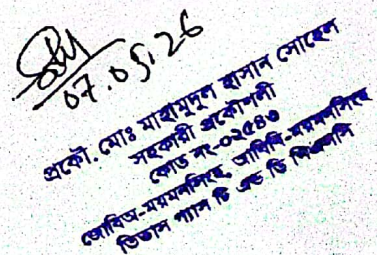 07.05.26
প্রকৌ. মোঃ মাহামুদুল হাসান সোহেল
সহকারী প্রকৌশলী
কোড নং-০২৫৪৩
জোবিঅ-ময়মনসিংহ, আবিবি-ময়মনসিংহ
তিতাস গ্যাস টি এন্ড ডি পিএলসি